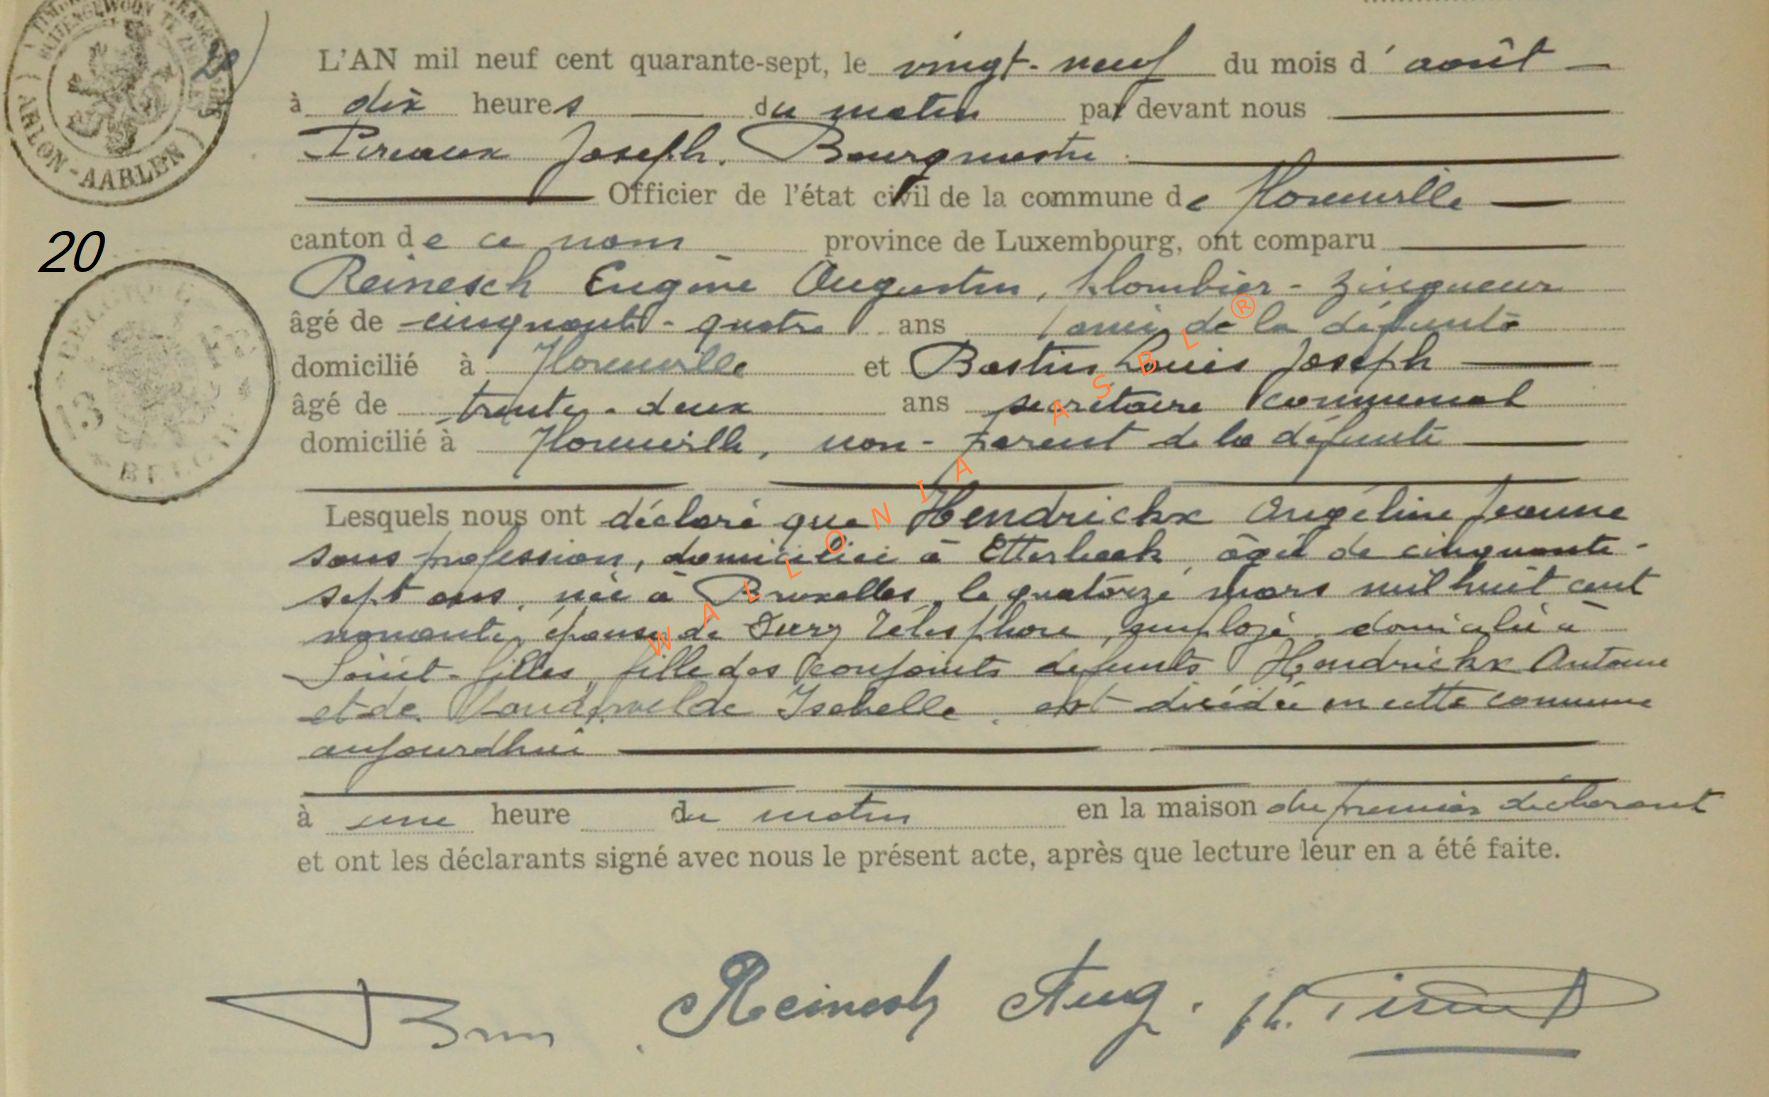 TIMBRE EXTRAORD
BUITENGEWOON TE ZEGEL
ARLON-AARLEN
20
20
BELGIQUE
13
BELGIE
L'AN mil neuf cent quarante-sept, le vingt-neuf du mois d'août
à dix heures du matin par devant nous
Joseph, Bourgmestre
Officier de l'état civil de la commune de Florenville
canton de ce nom province de Luxembourg, ont comparu
Reinesch Eugène Augustin, plombier-zingueur
âgé de cinquante-quatre ans ami de la défunte
domicilié à Florenville et Bastin Louis Joseph
âgé de trente-deux ans secrétaire communal
domicilié à Florenville, non-parent de la défunte
Lesquels nous ont déclaré que Hendrickx Angéline Jeanne
sans profession, domiciliée à Etterbeek, âgée de cinquante-
sept ans, née à Bruxelles, le quatorze mars mil huit cent
nonante, épouse de Télesphore, employé, domicilié à
Saint-Gilles, fille des conjoints défunts Hendrickx Antoine
et de Vandevelde Isabelle, est décédée en cette commune
aujourdhui
à une heure du matin en la maison du premier déclarant
et ont les déclarants signé avec nous le présent acte, après que lecture leur en a été faite.
Reinesch Aug.
WALLONIA ASBL ®